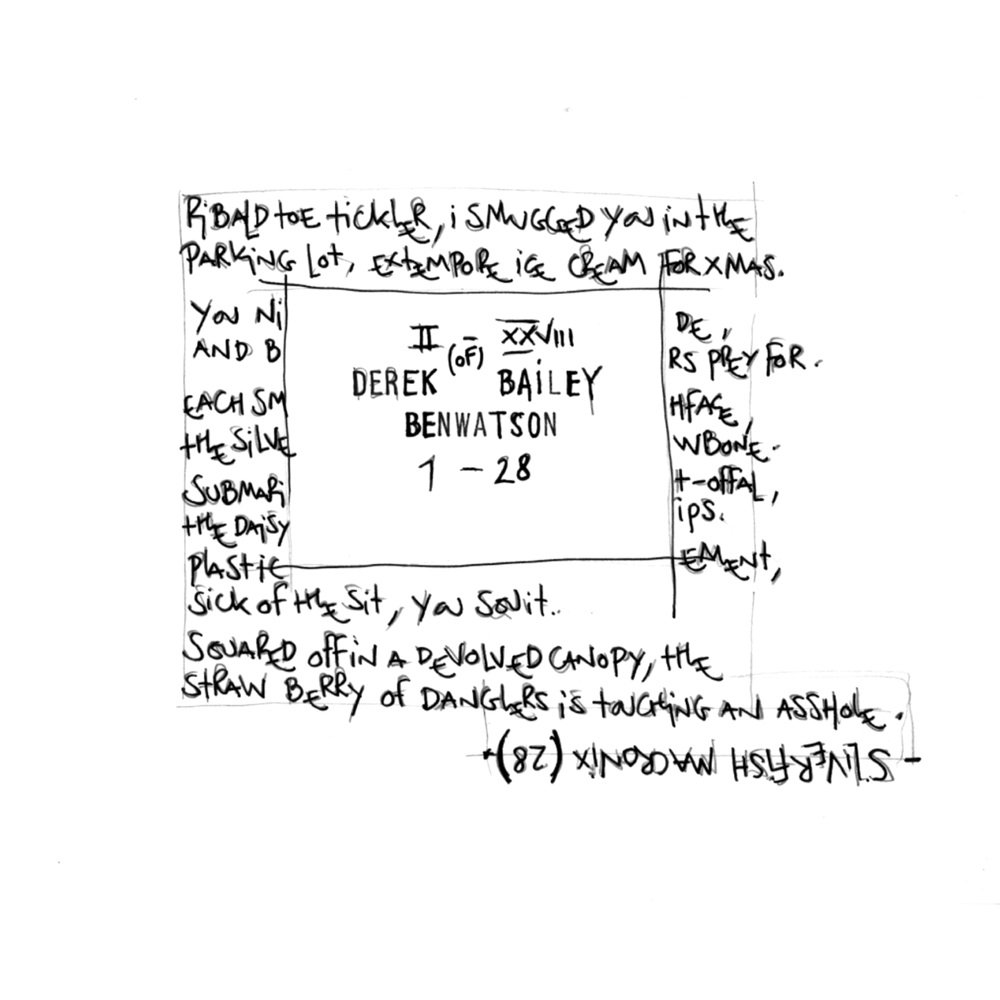 RiBALD toE tickLER, i SMUGGED YOU iN tHE
PARKiNG Lot, EXtEMPORE iCE CREAM FOR XMAS.
YOU Ni
DE,
AND B
RS PREY FOR.
EACH SM
HFACE,
tHE SiLVE
WBONE.
SUBMARi
t-OFFAL,
tHE DAiSY
iPS.
PLAStiC
EMENt,
SiCK of tHE Sit, YOU SQUit.
SQUARED off iN A DEVOLVED CANOPY, tHE
StRAW BERRY of DANGLERS iS tOUCHiNG AN ASSHOLE.
- SiLVERFiSH MACRONiX (28).
II (OF) XXVIII
DEREK BAiLEY
BENWATSON
1 - 28